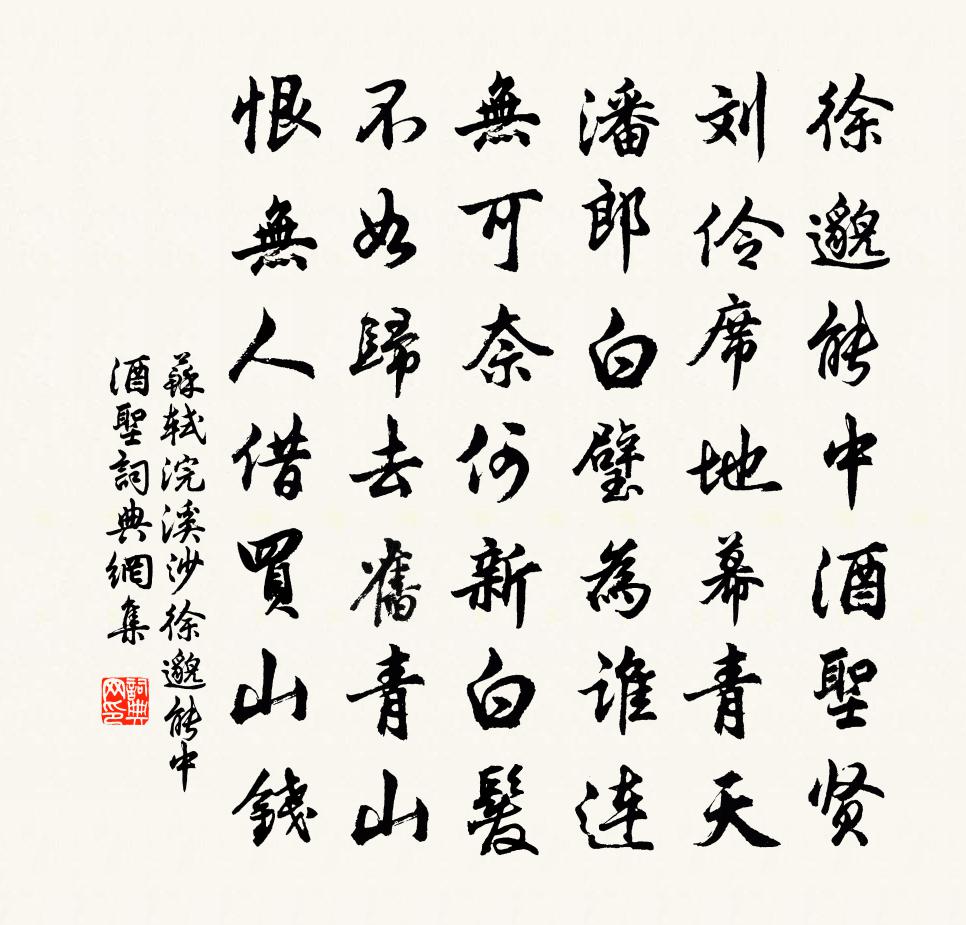 徐邈能中酒聖贤
刘伶席地幕青天
潘郎白璧為誰連
無可奈何新白髮
不如歸去舊青山
恨無人借買山錢
蘇轼浣溪沙徐邈能中
酒聖詞典網集
詞典网印